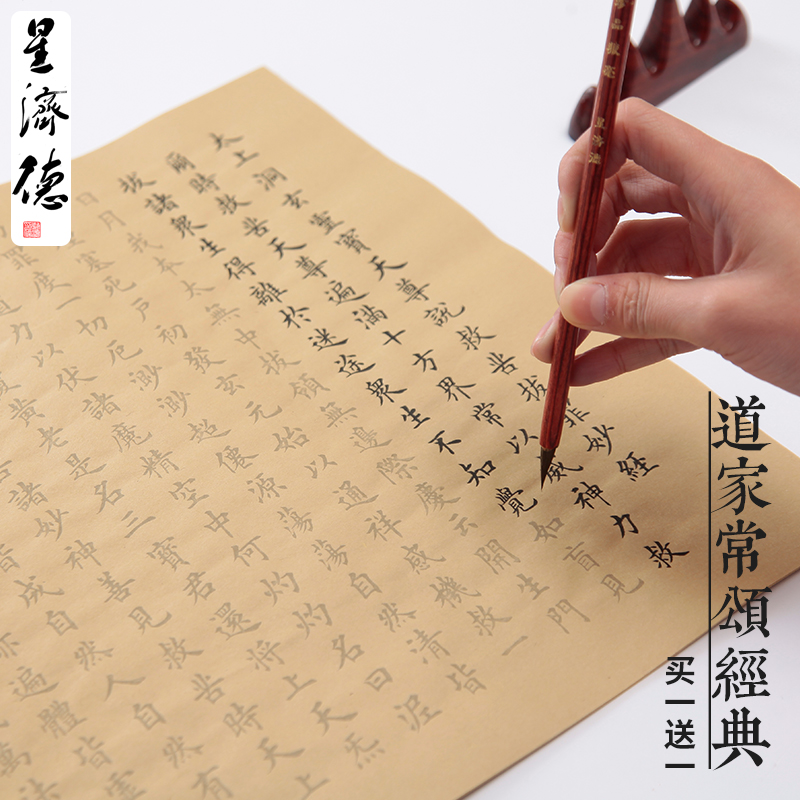 星濟德
珍品狼毫
星濟德
太上洞玄靈寶天尊說救苦拔罪妙經
爾時救苦天尊遍滿十方界常以威神力救
拔諸眾生得離於迷途眾生不知覺如盲見
日月我本太無中拔領無邊際慶云開生門
塞死戶初發玄元始以通祥感機救一
罪度一切厄渺渺超僊源蕩蕩自然清皆
力以伏諸魔精空中何灼灼名曰泥
黃老是名三寶君還將上天炁
諸妙神善見救苦時天上
成自然人自然有
亦遍體皆虛
萬法
道家常頌經典
买一送一